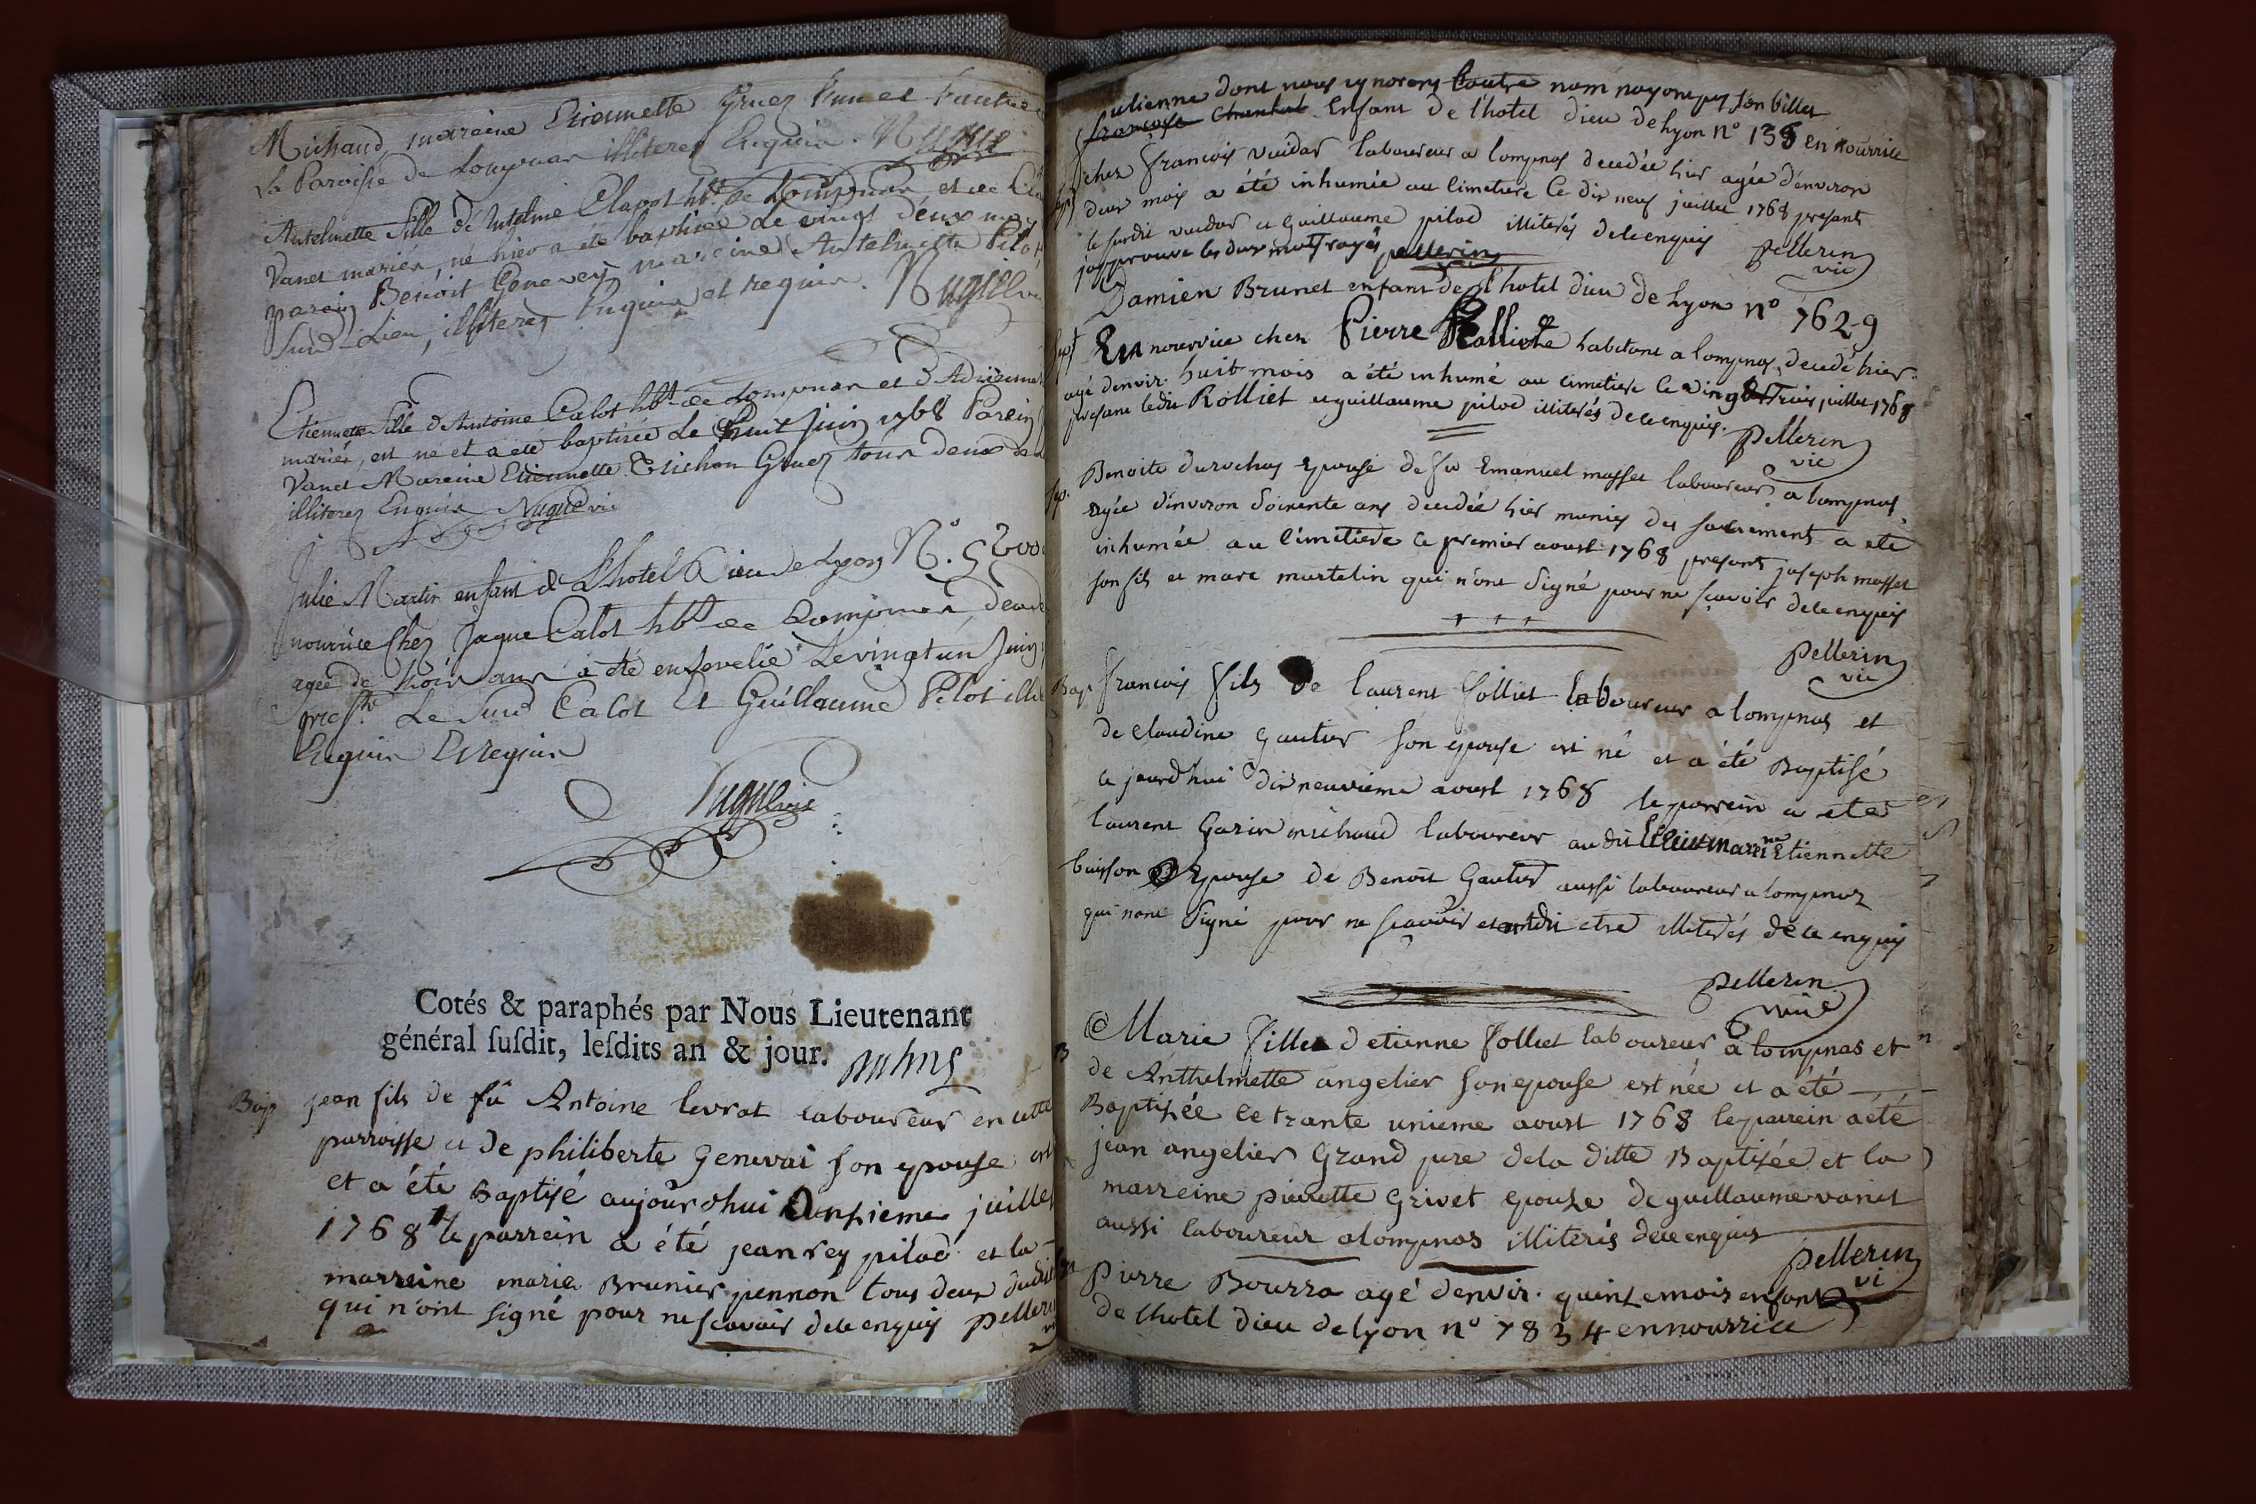 Michaud, maraine Etiennette Gruez l'un et l'autre
La Paroisse de Lompnas illiterez Enquis. Nugue
Antelmette fille d'Antelme Clapot hbt de Lompnas et de
Vanet mariez, né hier a été baptisée Le vingt deux may
parein Benoit Genevey maraine Antelmette Pilot
Susd. Lieu, illiterez Enquis et requis. Nugue
Etiennette fille d'Antoine Calot hbt de Lompnas et d'Adrienne
mariés, est né et a été baptisée Le huit Juin 1768 Parein
Vanet Mareine Etiennette Gruez tous deux
illiterez Enquis Nugue vic
Julie Martin enfant de L'hotel Dieu de Lyon N°.
nourrice Chez Jaque Calot hbt de Lompnas,
agée de trois ans a été ensevelie Le vingt un Juin
prests. Le Susd Calot Et Guillaume Pilot
Enquis Et requis
Nugue vic
Cotés & paraphés par Nous Lieutenant
général ſuſdit, leſdits an & jour.
Bap jean fils de fû Antoine levrat laboureur en cette
parroisse et de philiberte Genevai son epouse est
et a été Baptisé aujourdhui onzieme juillet
1768 le parrein a été jean rey pilod et la
marreine marie Brunier pennon tous deux dudit
qui n'ont signé pour ne scavoir de ce enquis pellerin
julienne dont nous ignorons l'autre nom n'ayant pas son billet
Enfant de l'hotel dieu de lyon n° 138 en nourrice
chez francois vuidar laboureur a lompnas decedée hier agée d'environ
deux mois a été inhumée au cimetiere Ce dix neuf juillet 1768 presants
le susdit vuidar et guillaume pilod illiterés de ce enquis pellerin
vic
j'approuve les deux mots rayés pellerin
Damien Brunet enfant de l'hotel dieu de lyon n° 7629
En nourrice chez Pierre habitant a lompnas decedé hier
agé d'envir. huit mois a été inhumé au cimetiere Ce vingt trois juillet 1768
presans ledit Rolliet et guillaume pilod illiterés de ce enquis. pellerin
vic
Benoite durochas epouse de fu Emanuel masset laboureur a lompnas
agée d'environ soixente ans decedée hier munies des sacrements a eté
inhumée au cimetiere Ce premier aoust 1768 presants joseph masset
son fils et marc martelin qui n'ont signé pour ne scavoir de ce enquis
pellerin
vic
Bap. francois fils de laurent folliet laboureur a lompnas et
de claudine gautier son epouse est né et a été Baptisé
ce jourd'hui dix neuvieme aoust 1768 le parrein a eté
laurent Garin michaud laboureur au dit et marrne Etiennette
buisson Epouse de Benoit Gautier aussi laboureur a lompnaz
qui nont signé pour ne scavoir etre illiterés de ce enquis
pellerin
vic
B Marie fille d'etienne folliet laboureur a lompnas et
de Anthelmette angelier son epouse est née et a été
Baptisée Ce trante unieme aoust 1768 le parrein a été
jean angelier Grand pere de la ditte Baptisée et la
marreine pierrette Grivet epouze de guillaume vanet
aussi laboureur a lompnas illiterés de ce enquis
pellerin
vi
pierre Bourra agé d'envir. quinze mois enfant
de l'hotel dieu de lyon n° 7834 en nourrice